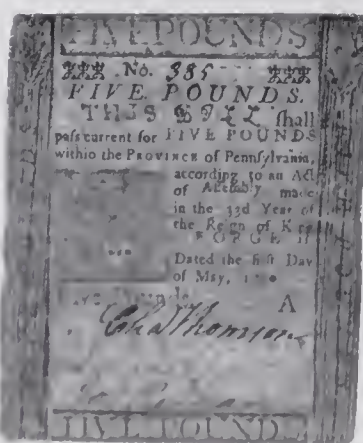 FIVE POUNDS
No. 385
FIVE POUNDS.
THIS BILL shall
pass current for FIVE POUNDS
within the PROVINCE of Pennsylvania,
according to an Act
of Assembly made
in the 33d Year of
the Reign of King
GEORGE II
Dated the first Day
of May,
A
Cha Thomson
FIVE POUNDS